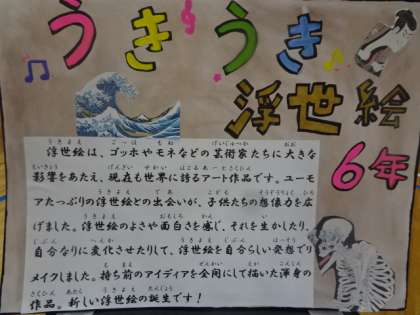 うきうき
浮世絵
6年
浮世絵は、ゴッホやモネなどの芸術家たちに大きな
影響をあたえ、現在も世界に誇るアート作品です。ユーモ
アたっぷりの浮世絵との出会いが、子供たちの想像力を広
げました。浮世絵のよさや面白さを感じ、それを生かしたり、
自分なりに変化させたりして、浮世絵を自分らしい発想でリ
メイクしました。持ち前のアイディアを全開にして描いた渾身の
作品。新しい浮世絵の誕生です！